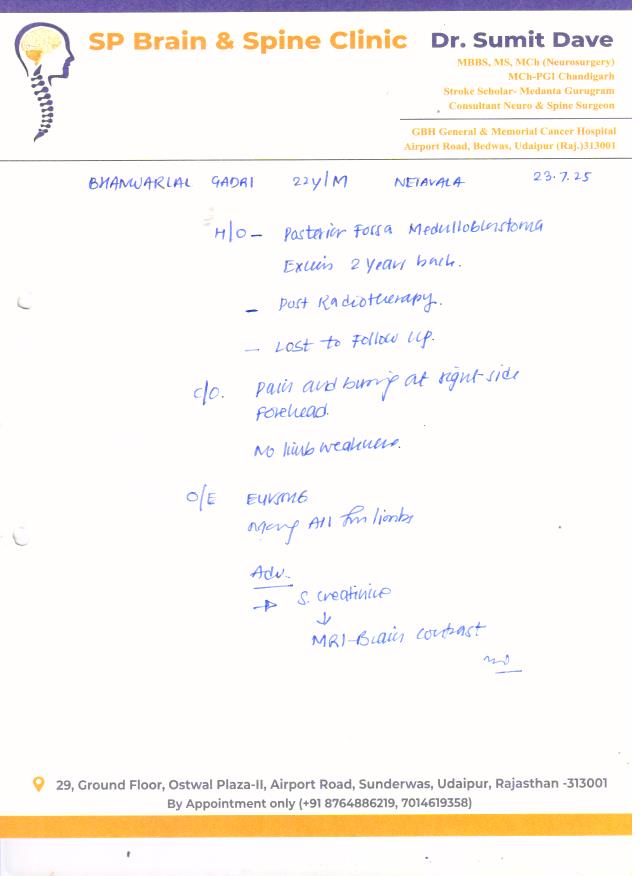 SP Brain & Spine Clinic
Dr. Sumit Dave
MBBS, MS, MCh (Neurosurgery)
MCh-PGI Chandigarh
Stroke Scholar- Medanta Gurugram
Consultant Neuro & Spine Surgeon
GBH General & Memorial Cancer Hospital
Airport Road, Bedwas, Udaipur (Raj.)313001
BHANWARLAL GADRI 22Y/M NETAVALA 23.7.25
H/O - Posterior Fossa Medulloblastoma
2 years back.
- Post Radiotherapy.
- Lost to Follow Up.
C/O. Pain and at right side
Forehead.
No limb weakness.
O/E E4V5M6
All limbs
Adv.
→ S. creatinine
↓
MRI-Brain contrast
29, Ground Floor, Ostwal Plaza-II, Airport Road, Sunderwas, Udaipur, Rajasthan -313001
By Appointment only (+91 8764886219, 7014619358)